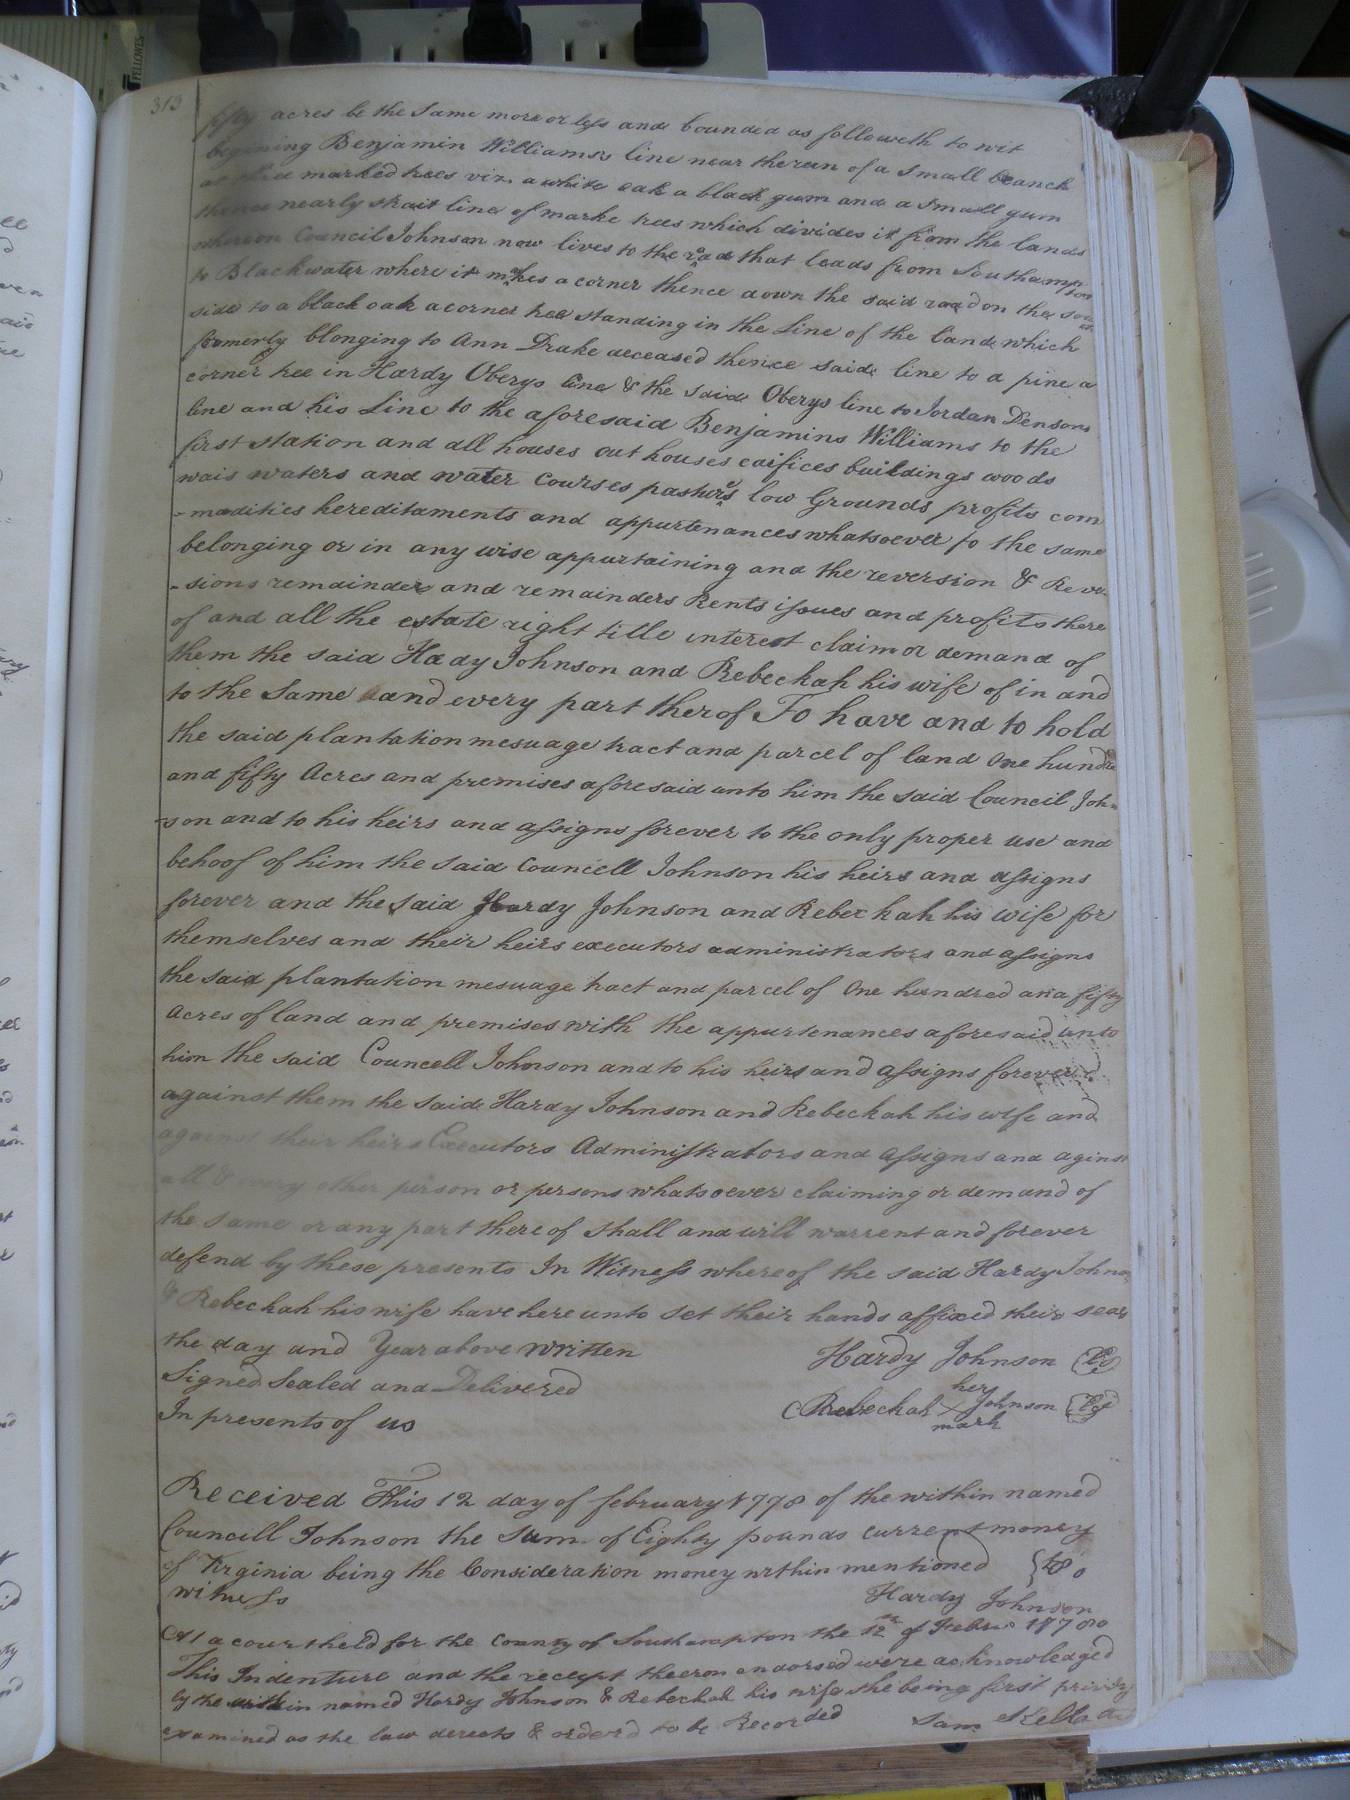 FELLOWES
313
fifty acres be the Same more or less and bounded as followeth to wit
begining Benjamin Williams's line near the run of a Small branch
marked trees viz. a white oak a black gum and a Small gum
thence nearly strait line of marke trees which divides it from the lands
whereon Council Johnson now lives to the road that leads from Southampton
to Blackwater where it makes a corner thence down the said road on the
side to a black oak a corner tree standing in the Line of the land which
formerly blonging to Ann Drake deceased thence said line to a pine a
corner tree in Hardy Oberys line & the said Oberys line to Jordan Densons
line and his Line to the aforesaid Benjamins Williams to the
first station and all houses out houses edifices buildings woods
wais waters and water Courses pasturs low Grounds profits com
-modities hereditaments and appurtenances whatsoever to the same
belonging or in any wise appurtaining and the reversion & Rever
-sions remainder and remainders Rents issues and profits there
of and all the estate right title interest claim or demand of
them the said Hardy Johnson and Rebeckah his wife of in and
to the Same and every part therof To have and to hold
the said plantation mesuage tract and parcel of land One hundred
and fifty Acres and premises aforesaid unto him the said Council John
-son and to his heirs and assigns forever to the only proper use and
behoof of him the said Councell Johnson his heirs and assigns
forever and the said Hardy Johnson and Rebeckah his wife for
themselves and their heirs executors administrators and assigns
the said plantation mesuage tract and parcel of One hundred and fifty
Acres of land and premises with the appurtenances aforesaid unto
him the said Councell Johnson and to his heirs and assigns forever
against them the said Hardy Johnson and Rebeckah his wife and
against their heirs Executors Administrators and assigns and aginst
all & every other person or persons whatsoever claiming or demand of
the same or any part there of shall and will warrent and forever
defend by these presents In Witness whereof the said Hardy Johnson
& Rebeckah his wife have here unto set their hands affixed their seas
the day and Year above written Hardy Johnson
Signed Sealed and Delivered her
In presents of us Rebeckah X Johnson
mark
Received This 12 day of february 1778 of the within named
Councill Johnson the sum of Eighty pounds current money
of Virginia being the Consideration money within mentioned
witness Hardy Johnson
At a court held for the County of Southampton the 12th of Febru 1778
This Indenture and the receipt theeron endorsed were acknowledged
by the within named Hardy Johnson & Rebeckah his wife she being first privily
examined as the law derects & orderd to be Recorded Sam Kello